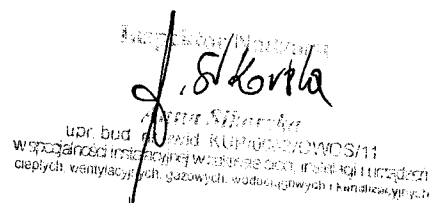 Inspektor Nadzoru
A. Sikorska
Anna Sikorska
upr. bud. ewid. KUP/0002/OWOS/11
w specjalności instalacyjnej w zakresie sieci, instalacji i urządzeń
cieplych, wentylacyjnych, gazowych, wodociągowych i kanalizacyjnych